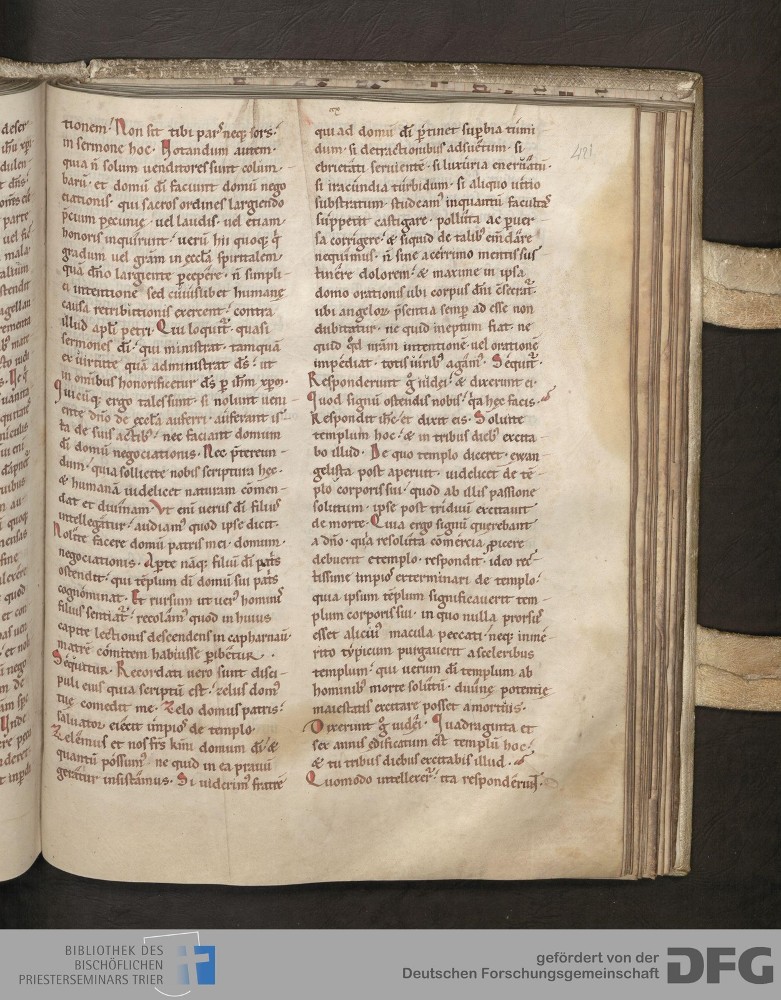 deser
ihū xp̄i
tionem. Non sit tibi pars neq; sors
in sermone hoc. Notandum autem.
quia n̄ solum uenditores sunt colum-
barū. et domū dī faciunt domū nego
ciationis. qui sacros ordines largiendo
p̄cium pecunie. uel laudis. uel etiam
honoris inquirunt. uerū hii quoq; q̇
gradum uel grām in eccl̄a spiritalem
quā dn̄o largiente ꝑcepere. n̄ simpli-
ci intentione sed cuiuslibet humane
causa retributionis exercent. contra
illud apl̄i petri. Qui loquit̄. quasi
sermones dī. qui ministrat. tamquā
ex uirtute quā administrat ds̄. ut
in omnibus honorificetur ds̄ ꝑ ihm̄ xpm̄.
Quicūq; ergo tales sunt. si nolunt ueni-
ente dn̄o de eccl̄a auferri. auferant is-
ta de suis actibꝰ. nec faciant domum
dī domū negociationis. Nec p̄tereun-
dum. quia sollicite nobis scriptura hec.
& humanā uidelicet naturam cōmen-
dat et diuinam. Vt eni uerus dī filius
intellegatur. audiamꝰ quod ipse dicit.
Nolite facere domū patris mei. domum
negociationis. Aperte nāq; filiū dī pat̄s
ostendit. qui tēplum dī domū sui pat̄s
cognominat. Et rursum ut uerꝰ hominis
filius sentiat̄. recolamꝰ quod in huius
capite lectionis descendens in capharnaū.
matrē comitem habuisse ꝑibetur.
Sequitur. Recordati uero sunt disci-
puli eius quia scriptū est. zelus domꝰ
tue comedit me. Zelo domus patris
saluator eiecit impios de templo.
Zelemus et nos frs̄ kmī domum dī. &
quantū possumꝰ ne quid in ea prauū
geratur insistamus. Si uiderimꝰ fratrē
qui ad domū dī p̄tinet suꝑbia tumi-
dum. si detractionibus adsuetum. si
ebrietati seruiente. si luxuria eneruatū.
si iracundia turbidum. si alicui uitio
substratum. studeamꝰ inquantū facultas
suppetit castigare. polluta ac ꝑuer-
sa corrigere. & siquid de talibꝰ em̄dare
nequimus. n̄ sine acerrimo mentis sus-
tinere dolorem. & maxime in ipsa
domo orationis ubi corpus dn̄i c̄secrat̄.
ubi angeloꝝ p̄sentia semꝑ ad esse non
dubitatur. ne quid ineptum fiat. ne
quid qd̄ nr̄am intentionē uel orationē
impediat. totis uiribꝰ agamꝰ. Sequit̄.
Responderunt g̊ iudei. & dixerunt ei.
Quod signū ostendis nobis. q̇a hec facis.
Respondit ihc̄. et dixit eis. Soluite
templum hoc. & in tribus diebꝰ excita-
bo illud. De quo templo diceret. ewan-
gelista post aperuit. uidelicet de tē-
plo corporis sui. quod ab illis passione
solutum. ipse post triduū excitauit
de morte. Quia ergo signū querebant
a dn̄o. quare solita comercia ꝓicere
debuerit e templo. respondit. ideo rec-
tissime impios exterminari de templo.
quia ipsum tēplum significauerit tem-
plum corporis sui. in quo nulla prorsus
esset alicuiꝰ macula peccati. neq; inme-
rito typicum purgauerit a sceleribus
templum. qui uerum dī templum ab
hominibꝰ morte solutū. diuine potentie
maiestatis excitare posset a mortuis.
Dixerunt g̊ iudei. Quadraginta et
sex annis edificatum est templū hoc.
& tu tribus diebus excitabis illud.
Quomodo intellexer̄. ita responderūt.
421
BIBLIOTHEK DES
BISCHÖFLICHEN
PRIESTERSEMINARS TRIER
gefördert von der
Deutschen Forschungsgemeinschaft
DFG